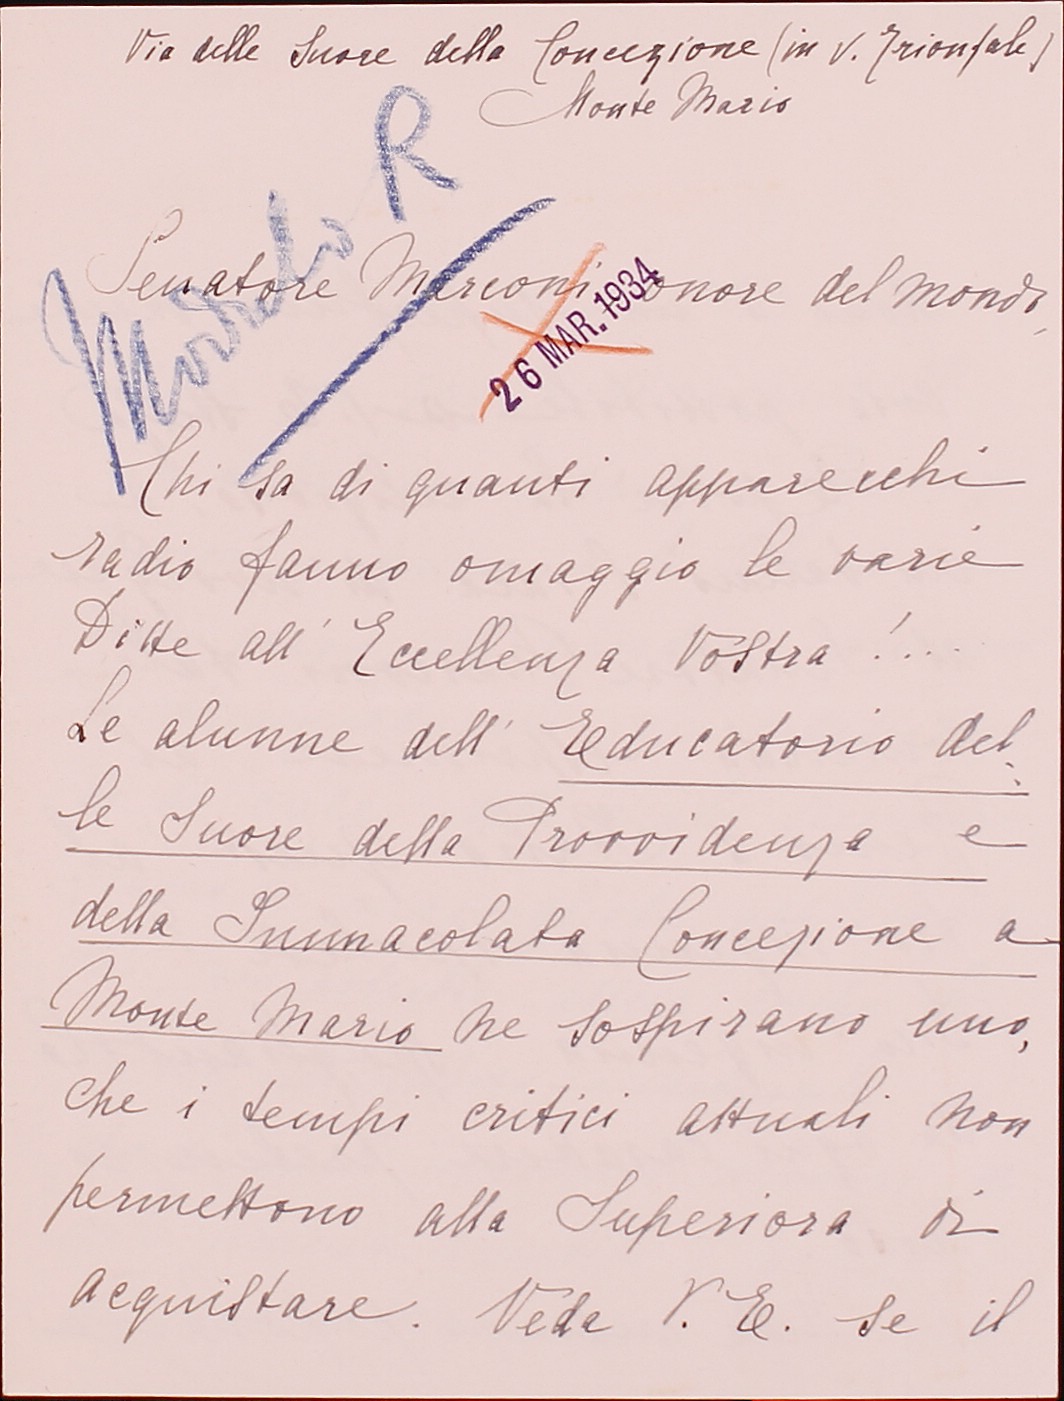 Via delle Suore della Concezione (in V. Trionfale)
Monte Mario
Modulo R
Senatore Marconi onore del mondo,
26 MAR. 1934
Chi sa di quanti apparecchi
radio fanno omaggio le varie
Ditte all' Eccellenza Vostra!....
Le alunne dell' Educatorio del-
le Suore della Provvidenza e
della Immacolata Concezione a
Monte Mario ne sospirano uno,
che i tempi critici attuali non
permettono alla Superiora di
acquistare. Veda V. E. se il